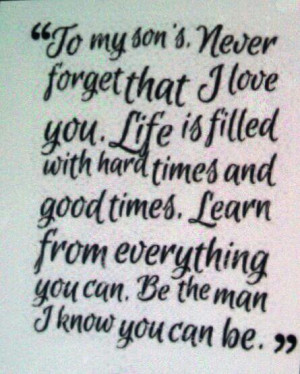 “To my son's. Never
forget that I love
you. Life is filled
with hard times and
good times. Learn
from everything
you can. Be the man
I know you can be.”